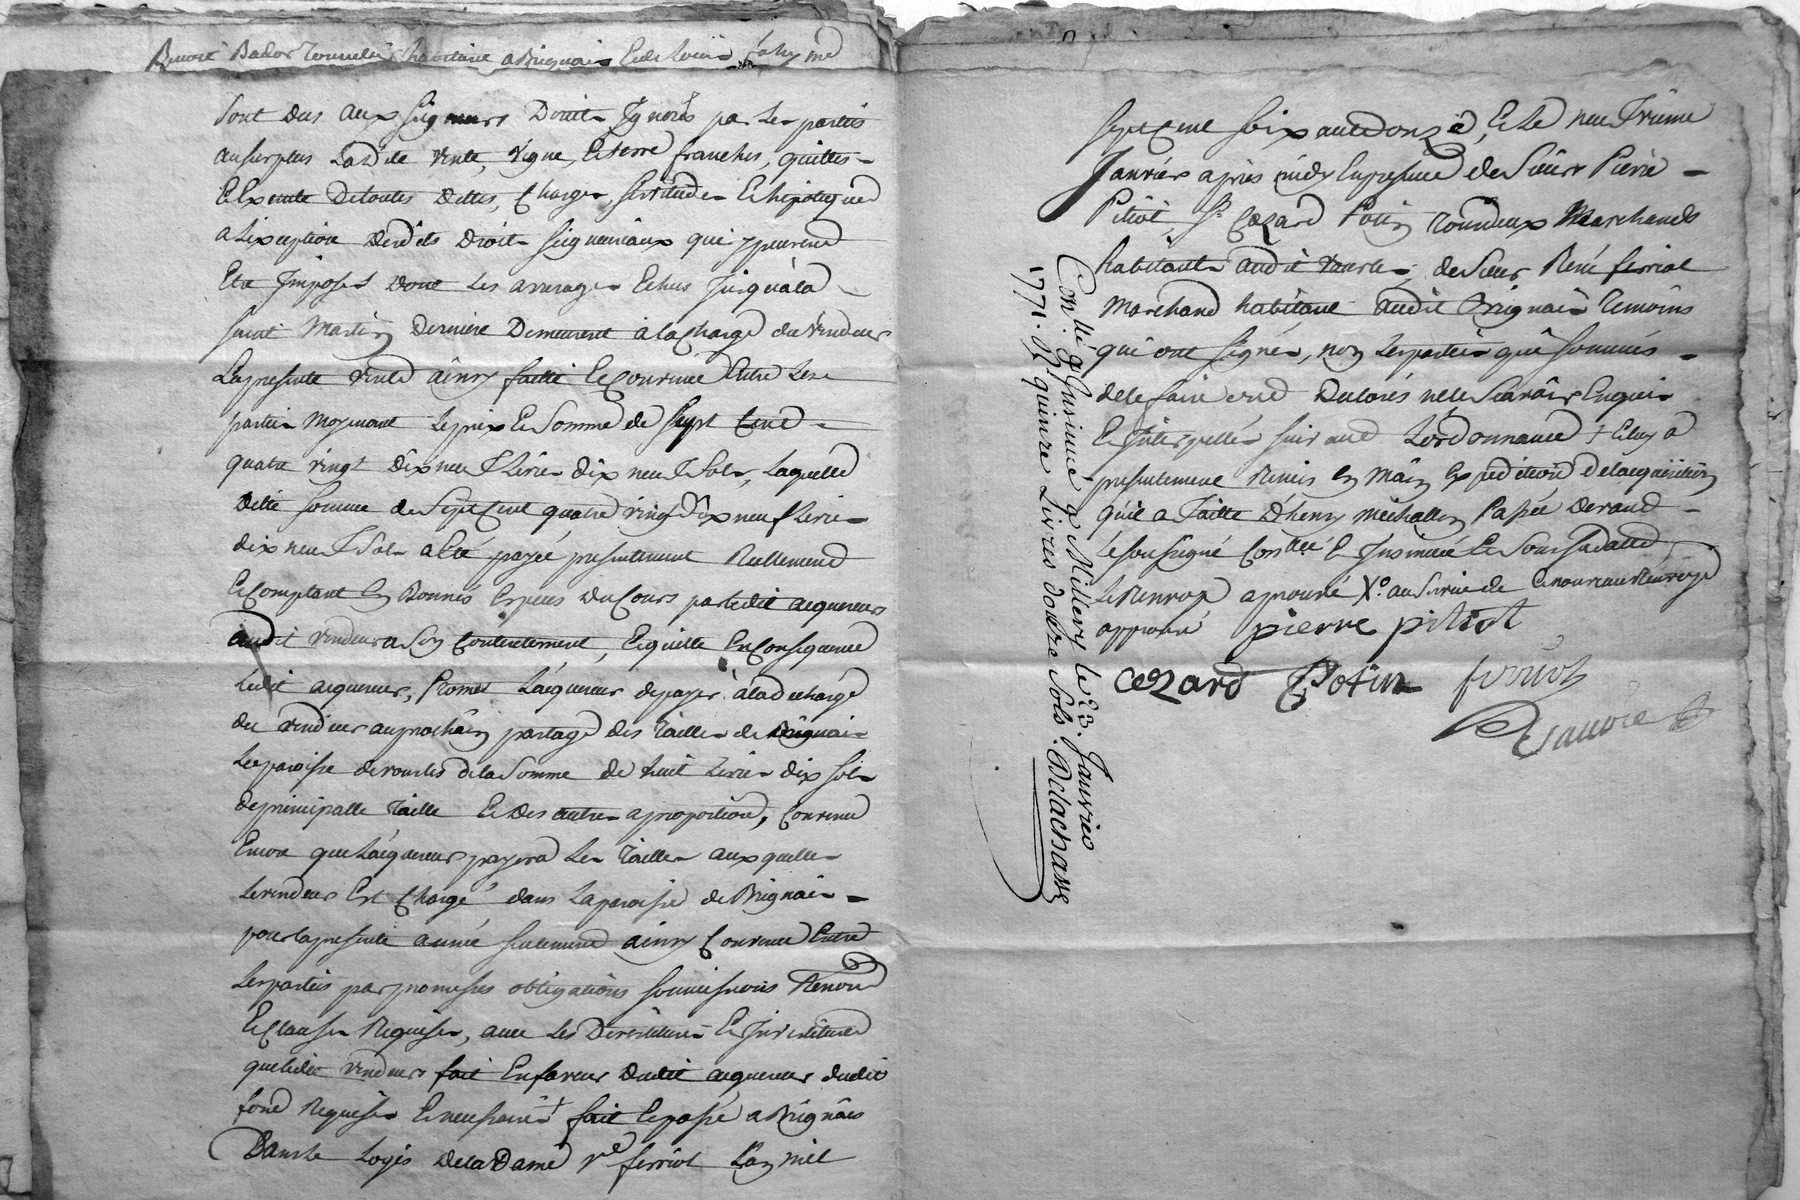 Benoit Bador Tonnelier habitant a Brignais
sont dus aux seigneurs Droits Ignorés par les parties
ausurplus Ladite vente, vigne, et terre franches, quittes
et Exente detoutes dettes, Charges, servitudes et hipoteques
a Lexeption desdits droits seigneuriaux qui ypeuvent
Etre Imposes dont les arrerages Echus Jusquàla
saint Martin Derniere Demeurent àlacharge du vendeur
Lapresente vente ainsy faitte et convenue Entre Les
parties moyenant Leprix et Somme de sept Cent
quatre vingt dix neuf Livres dix neuf Sols, Laquelle
dette somme de Sept Cent quatre vingt Dix neuf Livres
dix neuf Sols a Eté payée presentement Reellement
et Comptant En Bonnes Especes DuCours parledit acquereur
audit vendeur a Son Contentement, Et quitte En Consequence
Ledit acquereur, Promet Lacquereur depayer àladecharge
du vendeur auprochain partage des Tailles de Brignais
Laparoisse de vourles delaSomme de huit Livres dix sols
deprincipalle Taille Et des autres aproportion, Convenu
Encore que Lacquereur payera Les Tailles auxquelles
Levendeur Est Chargé dans Laparoisse de Brignais
pour lapresente année seulement ainsy Convenu Entre
Lesparties par promesses obligations soumissions Renon
Et Clauses Requises, avec les Devestitures Et Investitures
queledit vendeur fait Enfaveur Dudit acquereur dudit
fond Requises Et necessaires + fait Et passé a Brignais
Dans le Logis dela Dame Ve ferriol Lan mil
sept Cent soixantedonze, Et Le neuf
Janvier après midy Enpresence de Sieurs Pierre
Pitiot, Sr Cezard Potin tous deux Marchands
habitants audit vourles, de Sieur René ferriol
Marchand habitant audit Brignais Temoins
qui ont signés, non Lesparties qui sommés
dele faire ont Declarés nele Scavoir Enquis
Et Interpellés suivant Lordonnance + Et luy a
presentement Remis En Main Expedition delacquisition
quil a faitte D'henry Michallon Passée devant
Le soussigné Conllé Et Insinuée Et Sous Sadatte
Le Renvoy aprouvé Xo Et nouveau Renvoy
approuvé pierre pitiot
cezard Potin ferriol
Conllé & Insinué à Millery le 23. Janvier
1771. R. quinze Livres douze Sols. Delachasse